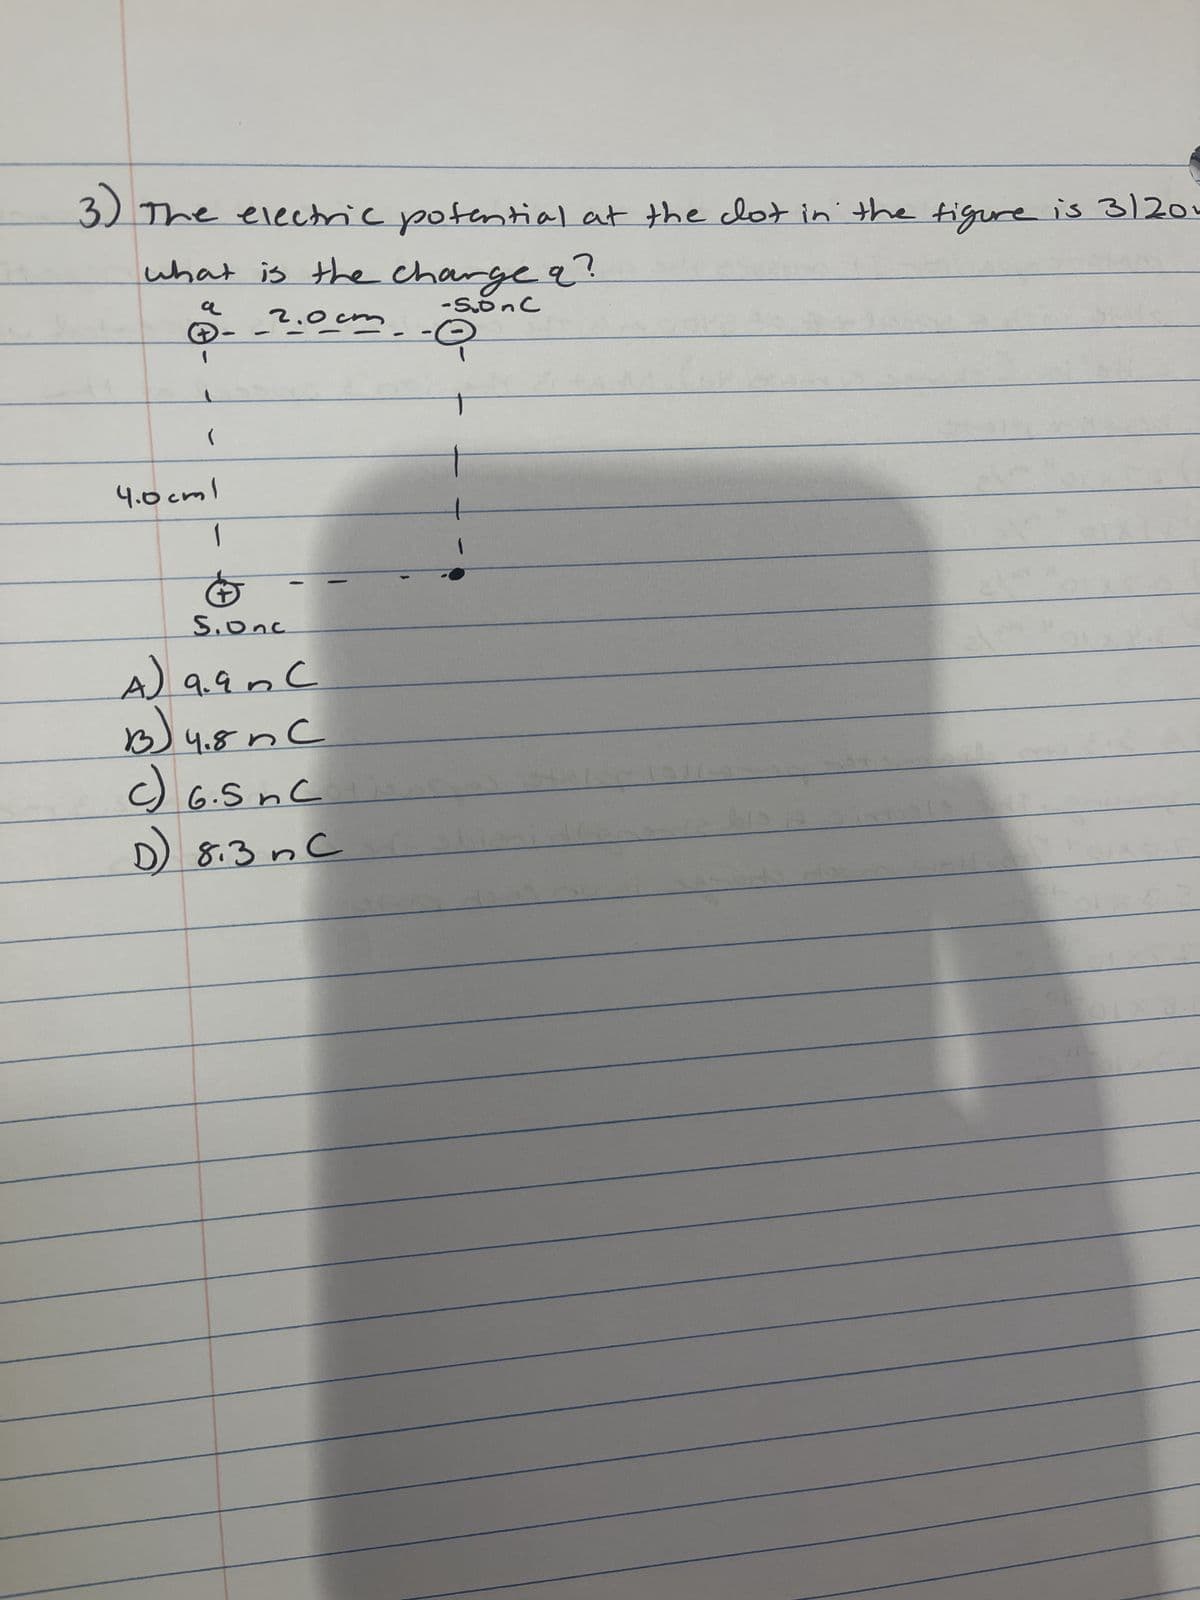 3) The electric potential at the dot in the figure is 3120v
what is the charge q?
q 2.0cm -5.0nC
+ -
4.0cm
+
5.0nc
A) 9.9nC
B) 4.8nC
C) 6.5nC
D) 8.3nC